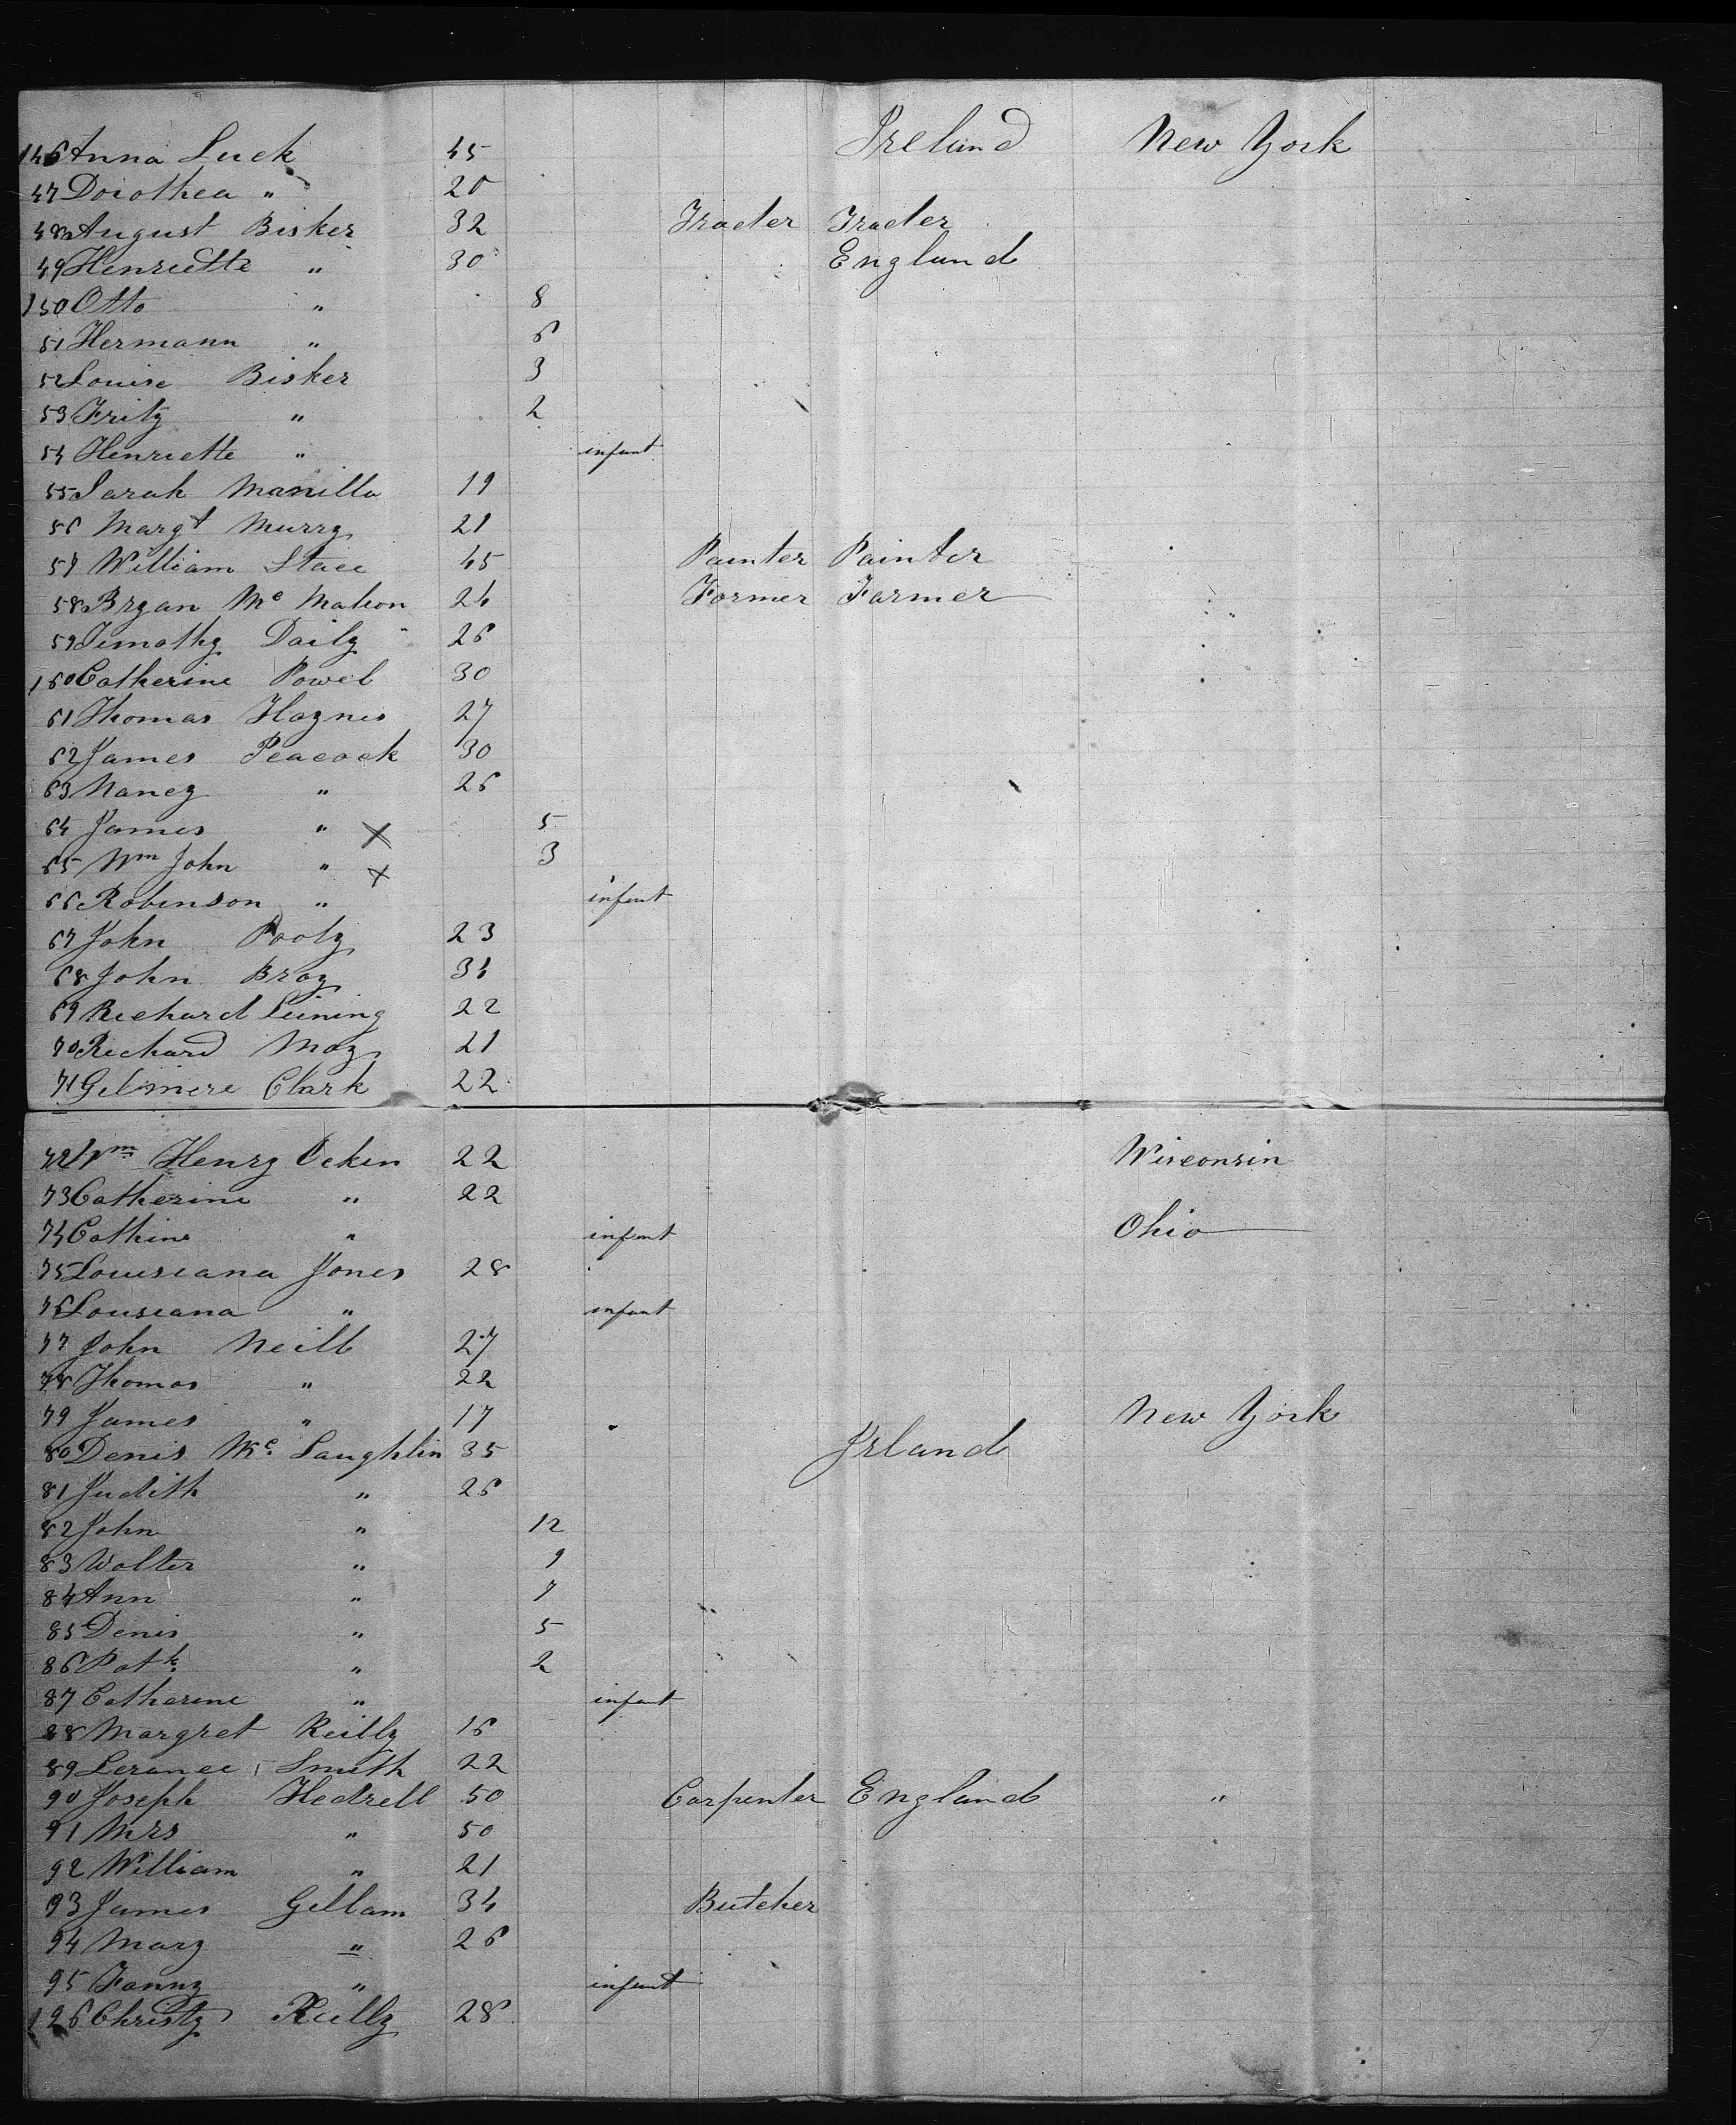 146 Anna Luck 45 Ireland New York
47 Dorothea " 20
48 August Bisker 32 Trader Trader
49 Henriette " 30 England
150 Otto " 8
51 Hermann " 6
52 Louise Bisker 3
53 Fritz " 2
54 Henriette " infant
55 Sarah Manilla 19
56 Margt Murry 21
57 William Stace 45 Painter Painter
58 Bryan Mc Mahon 24 Farmer Farmer
59 Timothy Daily 26
160 Catherine Powel 30
61 Thomas Haynes 27
62 James Peacock 30
63 Nancy " 26
64 James " X 5
65 Wm John " X 3
66 Robinson " infant
67 John Pooly 23
68 John Bray 34
69 Richard 22
70 Richard May 21
71 Gilmere Clark 22
72 Wm Henry Ocken 22 Wisconsin
73 Catherine " 22
74 Cathine " infant Ohio
75 Louisiana Jones 28
76 Lousiana " infant
77 John Neill 27
78 Thomas " 22
79 James " 17 New York
80 Denis Mc Laughlin 35 Irland
81 Judith " 26
82 John " 12
83 Walter " 9
84 Ann " 7
85 Denis " 5
86 Patk " 2
87 Catharine " infant
88 Margret Reilly 16
89 Smith 22
90 Joseph Hedrell 50 Carpenter England "
91 Mrs " 50
92 William " 21
93 James Gillam 34 Butcher
94 Mary " 26
95 Fanny " infant
196 Christy Reilly 28